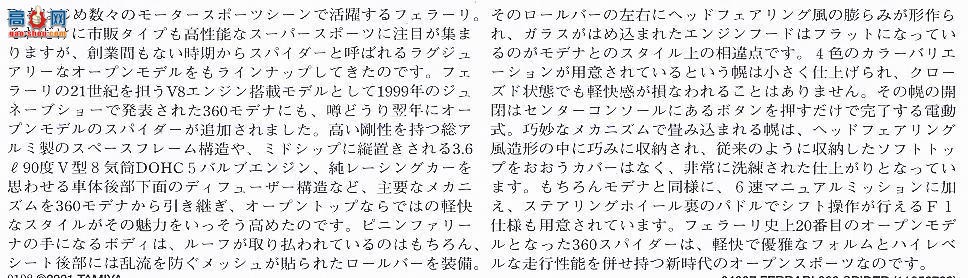 め数々のモータースポーツシーンで活躍するフェラーリ。
に市販タイプも高性能なスーパースポーツに注目が集ま
りますが、創業間もない時期からスパイダーと呼ばれるラグジュ
アリーなオープンモデルをもラインナップしてきたのです。フェ
ラーリの21世紀を担うV8エンジン搭載モデルとして1999年のジュ
ネーブショーで発表された360モデナにも、噂どうり翌年にオー
プンモデルのスパイダーが追加されました。高い剛性を持つ総ア
ルミ製のスペースフレーム構造や、ミドシップに縦置きされる3.6
ℓ90度V型8気筒DOHC5バルブエンジン、純レーシングカーを
思わせる車体後部下面のディフューザー構造など、主要なメカニ
ズムを360モデナから引き継ぎ、オープントップならではの軽快
なスタイルがその魅力をいっそう高めたのです。ピニンファリー
ナの手になるボディは、ルーフが取り払われているのはもちろん、
シート後部には乱流を防ぐメッシュが貼られたロールバーを装備。
TAMIYA
そのロールバーの左右にヘッドフェアリング風の膨らみが形作ら
れ、ガラスがはめ込まれたエンジンフードはフラットになってい
るのがモデナとのスタイル上の相違点です。4色のカラーバリエ
ーションが用意されているという幌は小さく仕上げられ、クロー
ズド状態でも軽快感が損なわれることはありません。その幌の開
閉はセンターコンソールにあるボタンを押すだけで完了する電動
式。巧妙なメカニズムで畳み込まれる幌は、ヘッドフェアリング
風造形の中に巧みに収納され、従来のように収納したソフトトッ
プをおおうカバーはなく、非常に洗練された仕上がりとなってい
ます。もちろんモデナと同様に、6速マニュアルミッションに加
え、ステアリングホイール裏のパドルでシフト操作が行えるF1
仕様も用意されています。フェラーリ史上20番目のオープンモデ
ルとなった360スパイダーは、軽快で優雅なフォルムとハイレベ
ルな走行性能を併せ持つ新時代のオープンスポーツなのです。
FERRARI 360 SPIDER